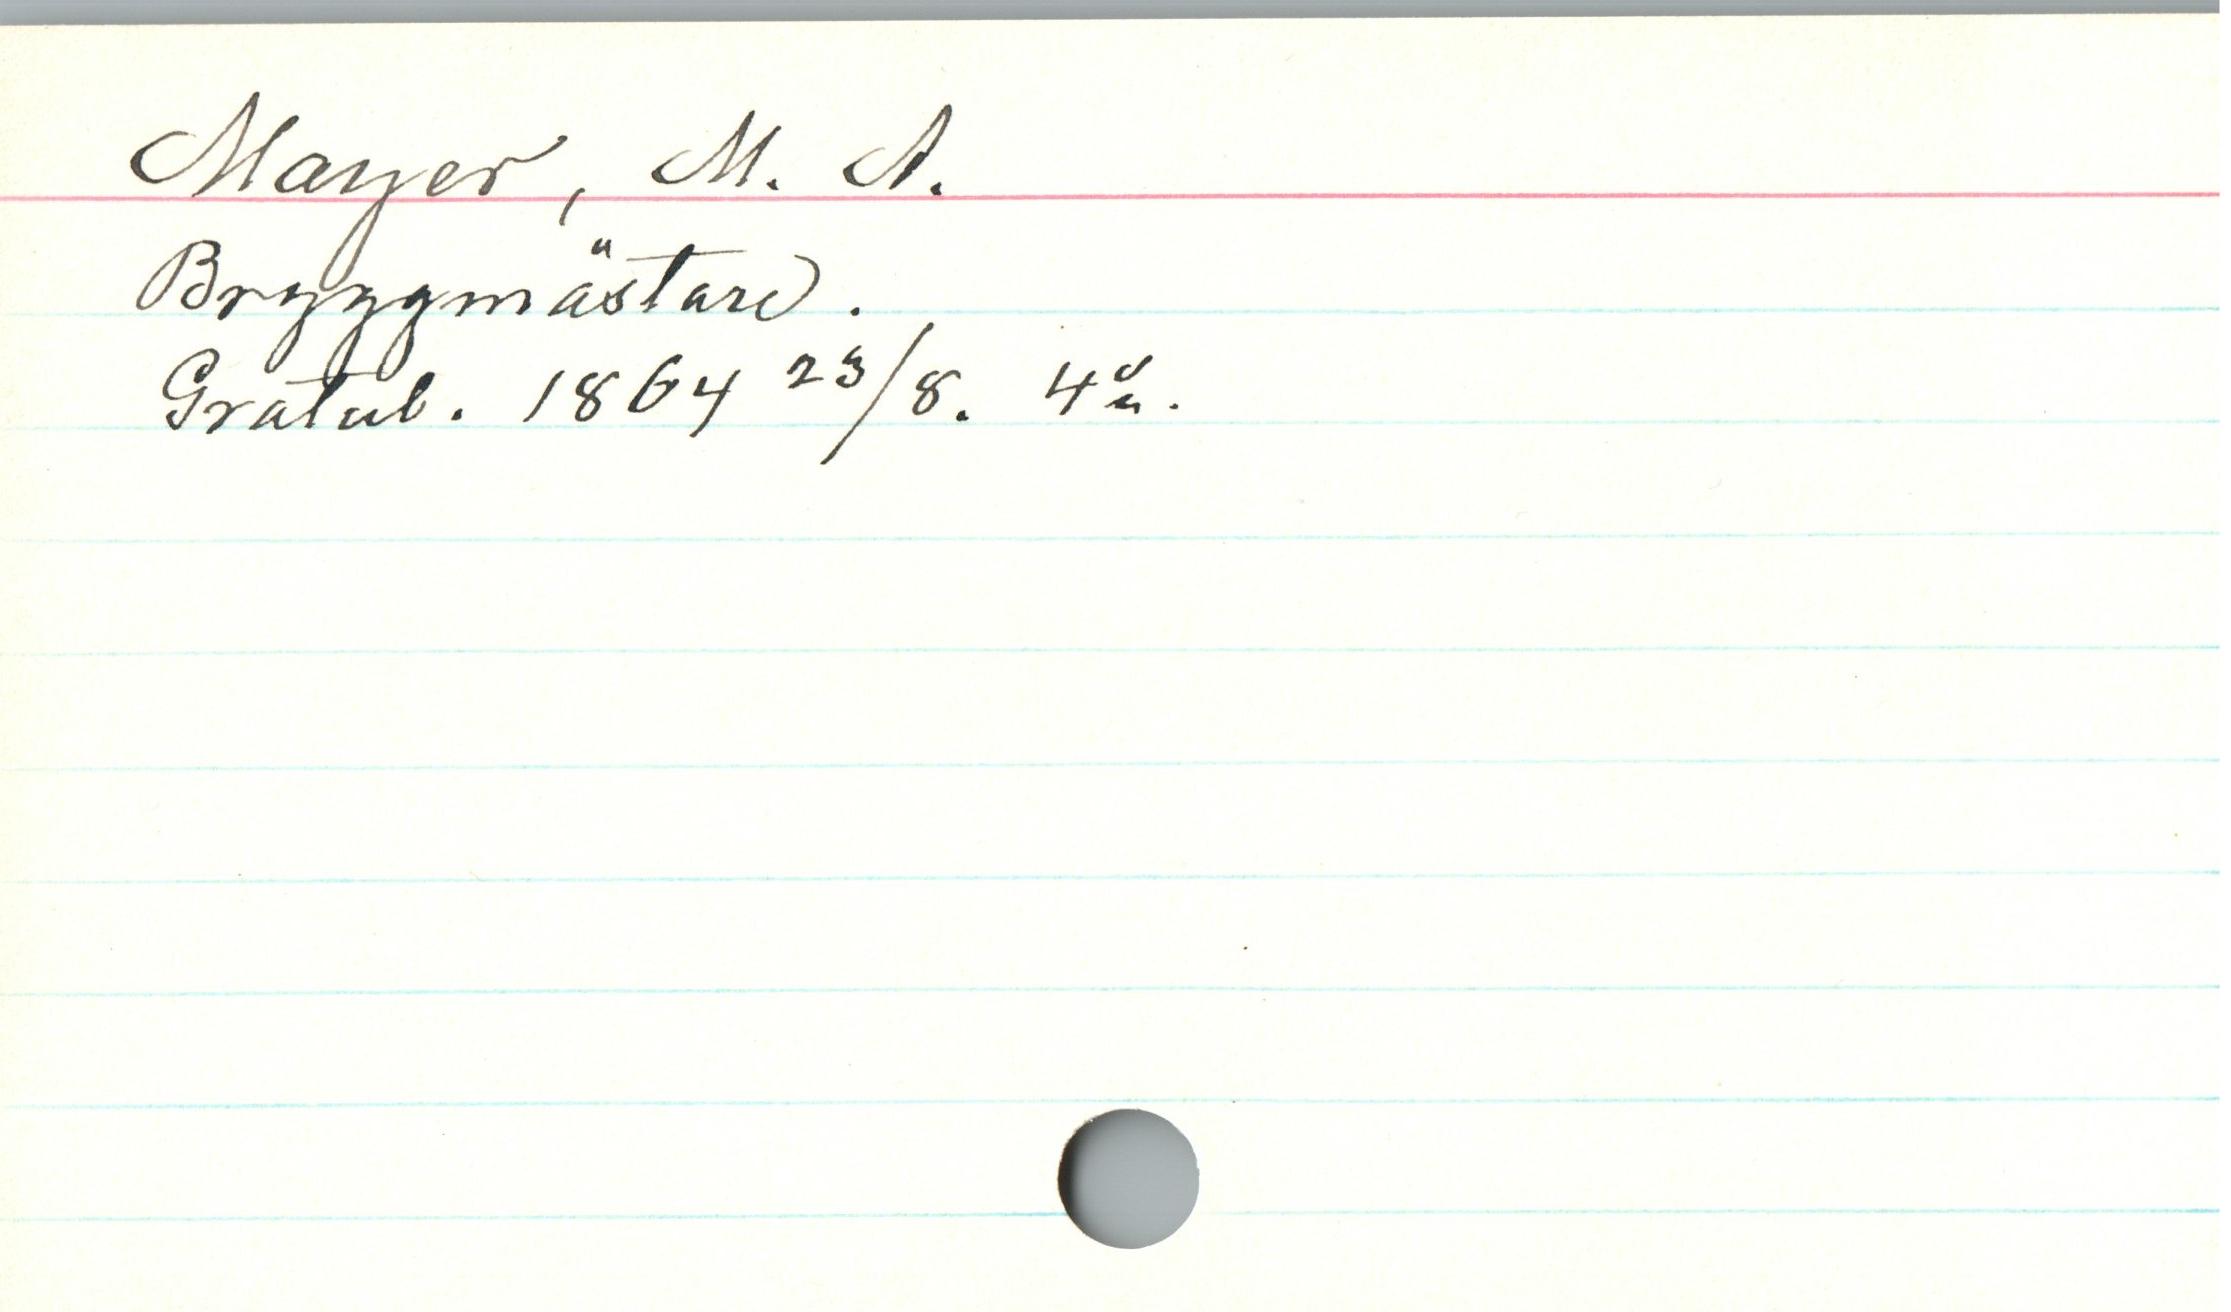 Mayer, M. A.
Bryggmästare.
Gratul. 1864 23/8. 4o